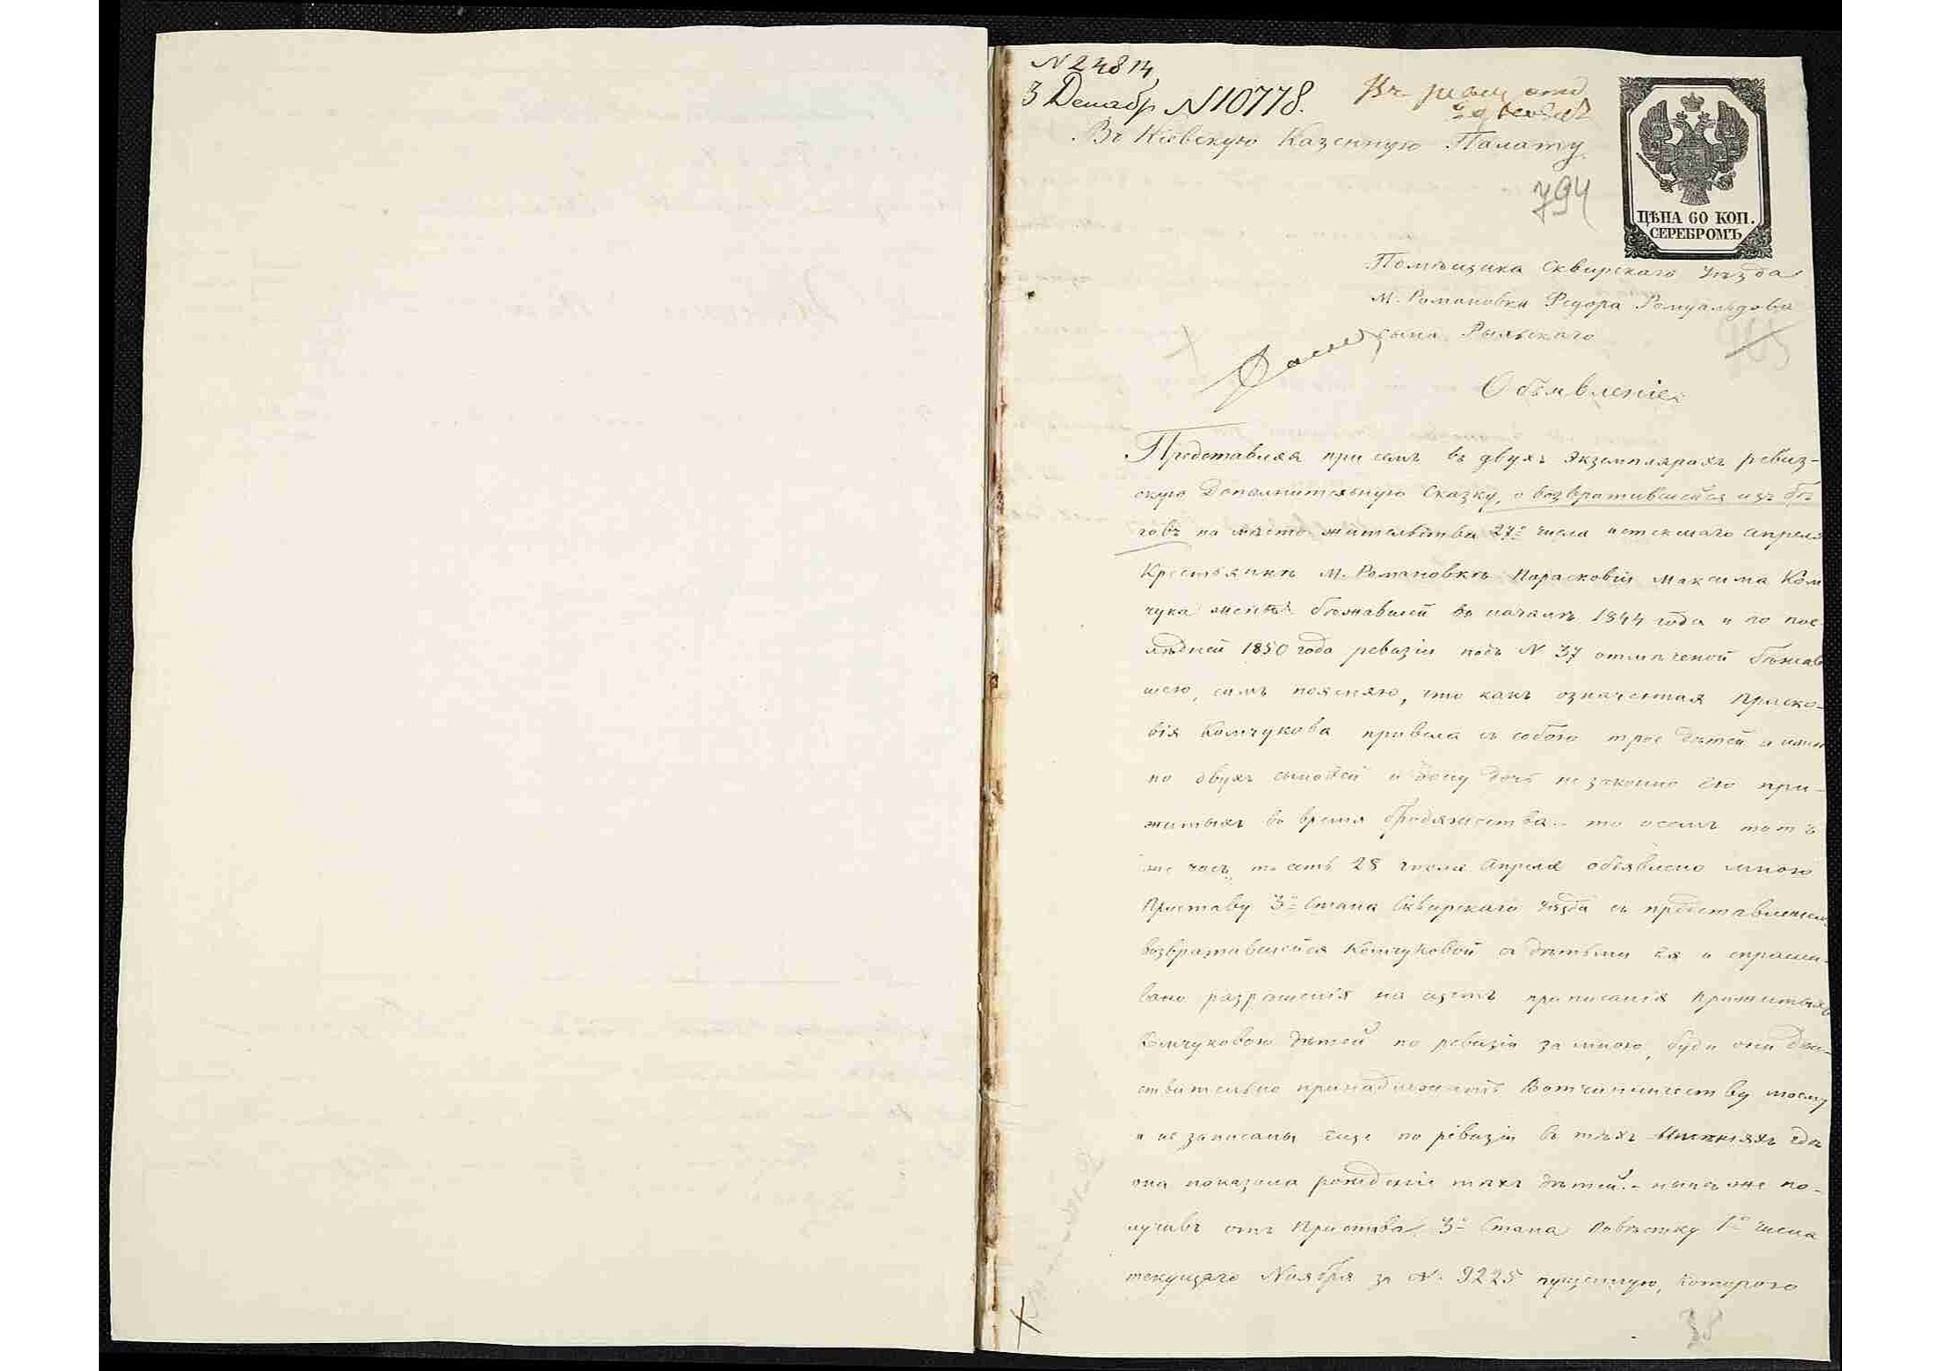 N 24814
3 Декабр N 10778.
Въ Кіевскую Казенную Палату
794
ЦѢНА 60 КОП.
СЕРЕБРОМЪ
Помѣщика Сквирскаго уѣзда
М. Романовки Федора Ромуальдова
сына Рыльскаго
Объявленіе
Представляя при семъ въ двухъ экземплярахъ ревиз-
скую дополнительную Сказку, о возвратившейся изъ бѣ-
говъ на мѣсто жительства 27го числа истекшаго апреля
Крестьянкѣ М. Романовкѣ Парасковіи Максима Ком
чука женѣ бѣжавшей въ началѣ 1844 года и по пос
лѣдней 1850 года ревизіи подъ N 37 отмѣченой бѣжав
шею, симъ поясняю, что какъ означенная Праско-
вія Комчукова привела съ собою трое дѣтей а имен
но двухъ сыновей и дочь незаконно ею при-
житыхъ во время бродяжества - то о семъ тотъ
же часъ, то есть 28 числа Апреля объявлено мною
Приставу 3го Стана Сквирскаго уѣзда съ представленіем
возвратившейся Комчуковой съ дѣтьми ея и спраши-
вано разрѣшенія на щетъ прописанія прижитыхъ
Комчуковою дѣтей по ревизіи за мною, буди они дей-
ствительно принадлежатъ Вотчинничеству моему
и не записаны еще по ревизіи въ тѣхъ Имѣніяхъ гдѣ
она показала рожденіе тѣхъ дѣтей. - нынѣ же по-
лучивъ отъ Пристава 3го Стана Повѣстку 1го числа
текущаго Ноября за N. 9225 пущенную, котораго